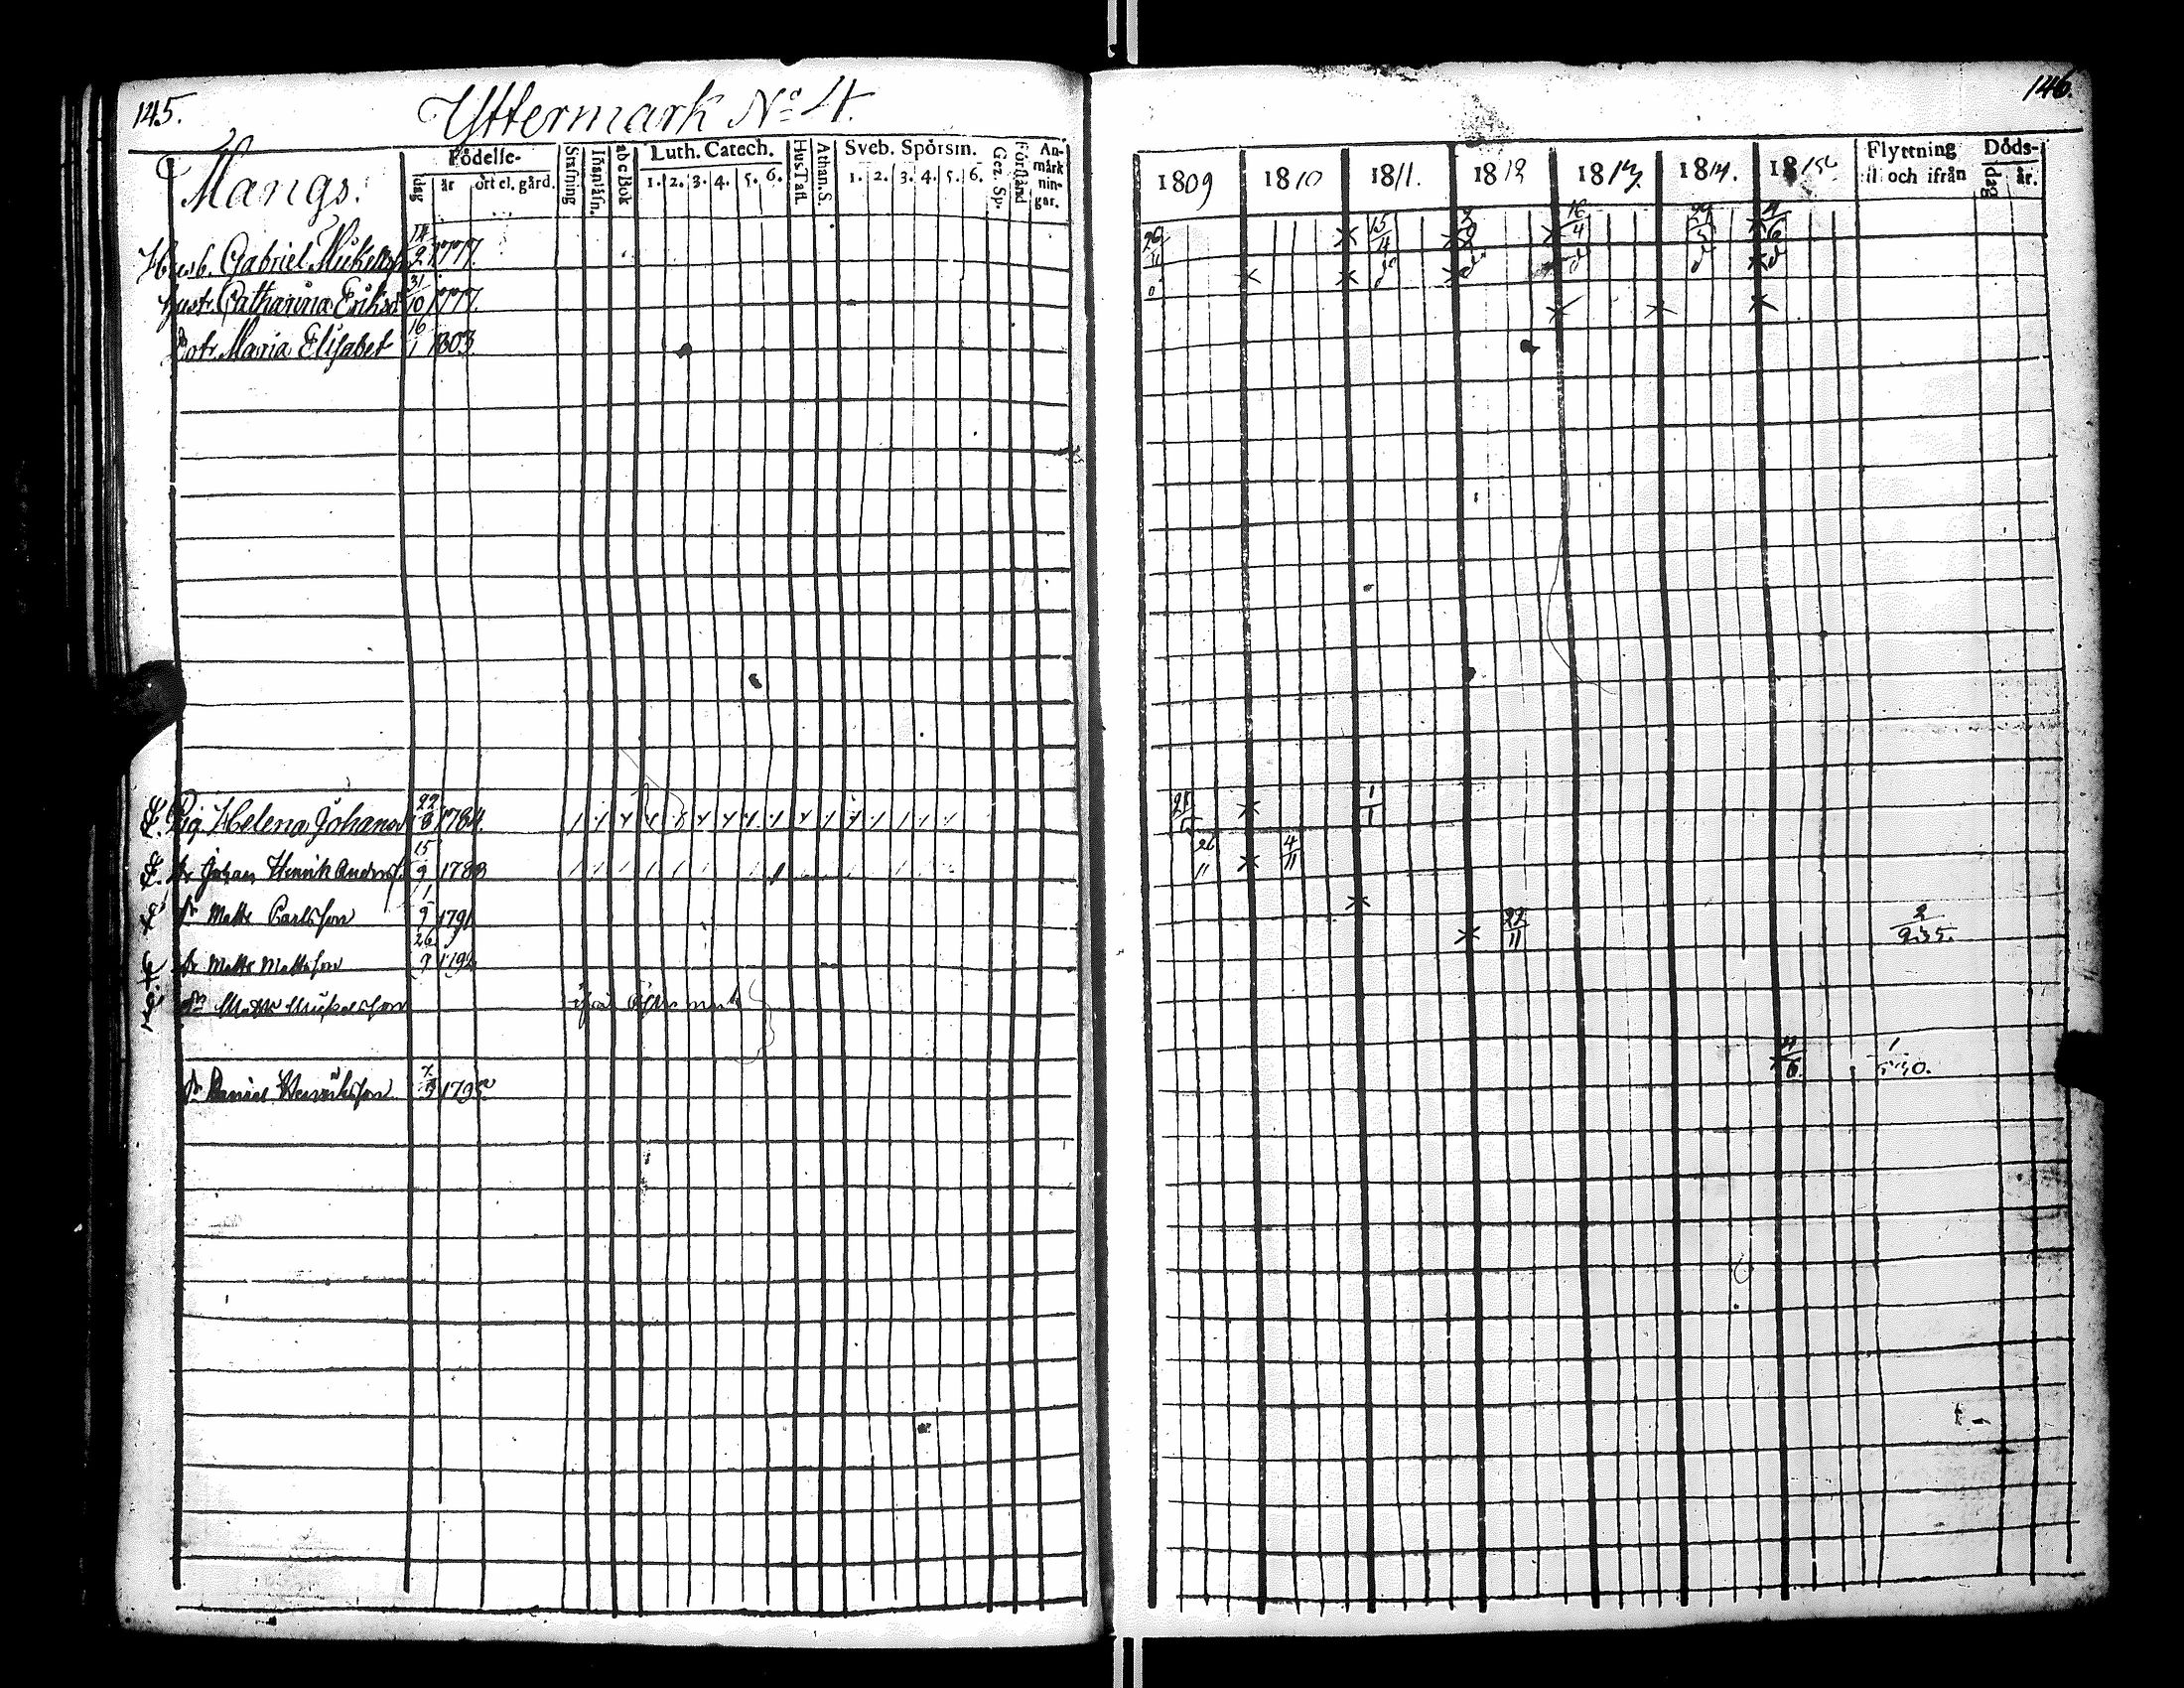 145.
Yttermark No 4.
146.
Mangs.
Födelse-
dag
år
ort el. gård.
Stafning
Innanläsn.
abc Bok
Luth. Catech.
1. 2. 3. 4. 5. 6.
Hus Tafl.
Athan. S.
Sveb. Spörsm.
1. 2. 3. 4. 5. 6.
Gez. Sp.
Förstånd
An-
märk
nin-
gar.
1809 1810 1811. 1812 1813. 1814. 1815
Flyttning
till och ifrån
Döds-
dag
år.
Husb. Gabriel Mickelss 2 1777
Hust. Catharina Eriksd 31/10 1777.
Dotr Maria Elisabet 16/1 1803
26/11 15/4 16/4 4/6
Pig. Helena Johansd 22 1784.
1/1
Dr Johan Henrik Anderss. 15/9 1783
26/11 4/11
Dr Matts Carlsson 1/9 1791
Dr Matts Mattsson 26/9 179
22/11 2/235.
Dr Matts Mickelsson
ifrån
Dr Daniel Henriksson 1795
4/6.